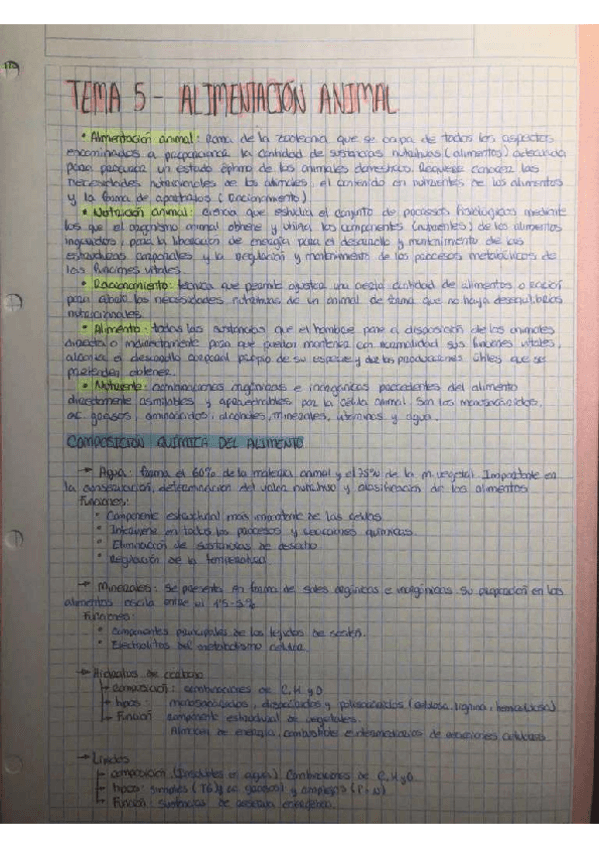 TEMA 5 - ALIMENTACIÓN ANIMAL
• Alimentación animal: Rama de la zootecnia que se ocupa de todos los aspectos
encaminados a proporcionar la cantidad de sustancias nutritivas (alimentos) adecuada
para conseguir un estado óptimo de los animales domésticos. Requiere conocer las
necesidades nutricionales de los animales, el contenido en nutrientes de los alimentos
y la forma de aportarlos (racionamiento)
• Nutrición animal: ciencia que estudia el conjunto de procesos fisiológicos mediante
los que el organismo animal obtiene y utiliza los componentes (nutrientes) de los alimentos
ingeridos, para la liberación de energía para el desarrollo y mantenimiento de las
estructuras corporales y la regulación y mantenimiento de los procesos metabólicos de
las funciones vitales.
• Racionamiento: técnica que permite ajustar una cierta cantidad de alimentos o ración
para cubrir las necesidades nutritivas de un animal de forma que no haya desequilibrios
nutricionales.
• Alimento: todas las sustancias que el hombre pone a disposición de los animales
directa o indirectamente para que puedan mantener con normalidad sus funciones vitales,
alcance el desarrollo corporal propio de su especie y de las producciones útiles que se
pretenden obtener.
• Nutriente: combinaciones orgánicas e inorgánicas procedentes del alimento
directamente asimilables y aprovechables por la célula animal. Son los monosacáridos,
ac. grasos, aminoácidos, alcoholes, minerales, vitaminas y agua.
COMPOSICIÓN QUÍMICA DEL ALIMENTO
→ Agua: forma el 60% de la materia animal y el 75% de la m. vegetal. Importante en
la conservación, determinación del valor nutritivo y clasificación de los alimentos
Funciones:
• Componente estructural más importante de las células
• Interviene en todos los procesos y reacciones químicas.
• Eliminación de sustancias de desecho
• Regulación de la temperatura
→ Minerales: Se presenta en forma de sales orgánicas e inorgánicas. Su proporción en los
alimentos oscila entre el 1'5-5%
Funciones:
• Componentes principales de los tejidos de sostén.
• Electrolitos del metabolismo celular.
→ Hidratos de carbono
composición: combinaciones de C, H y O
tipos: monosacáridos, disacáridos y polisacáridos (celulosa, lignina, hemicelulosa)
Función: componente estructural de vegetales.
Almacén de energía, combustible e intermediarios de reacciones celulares.
→ Lípidos
composición: (insolubles en agua) Combinaciones de C, H y O.
tipos: simples (TG y ac grasos) y complejos (P y N)
Función: sustancias de reserva energética.